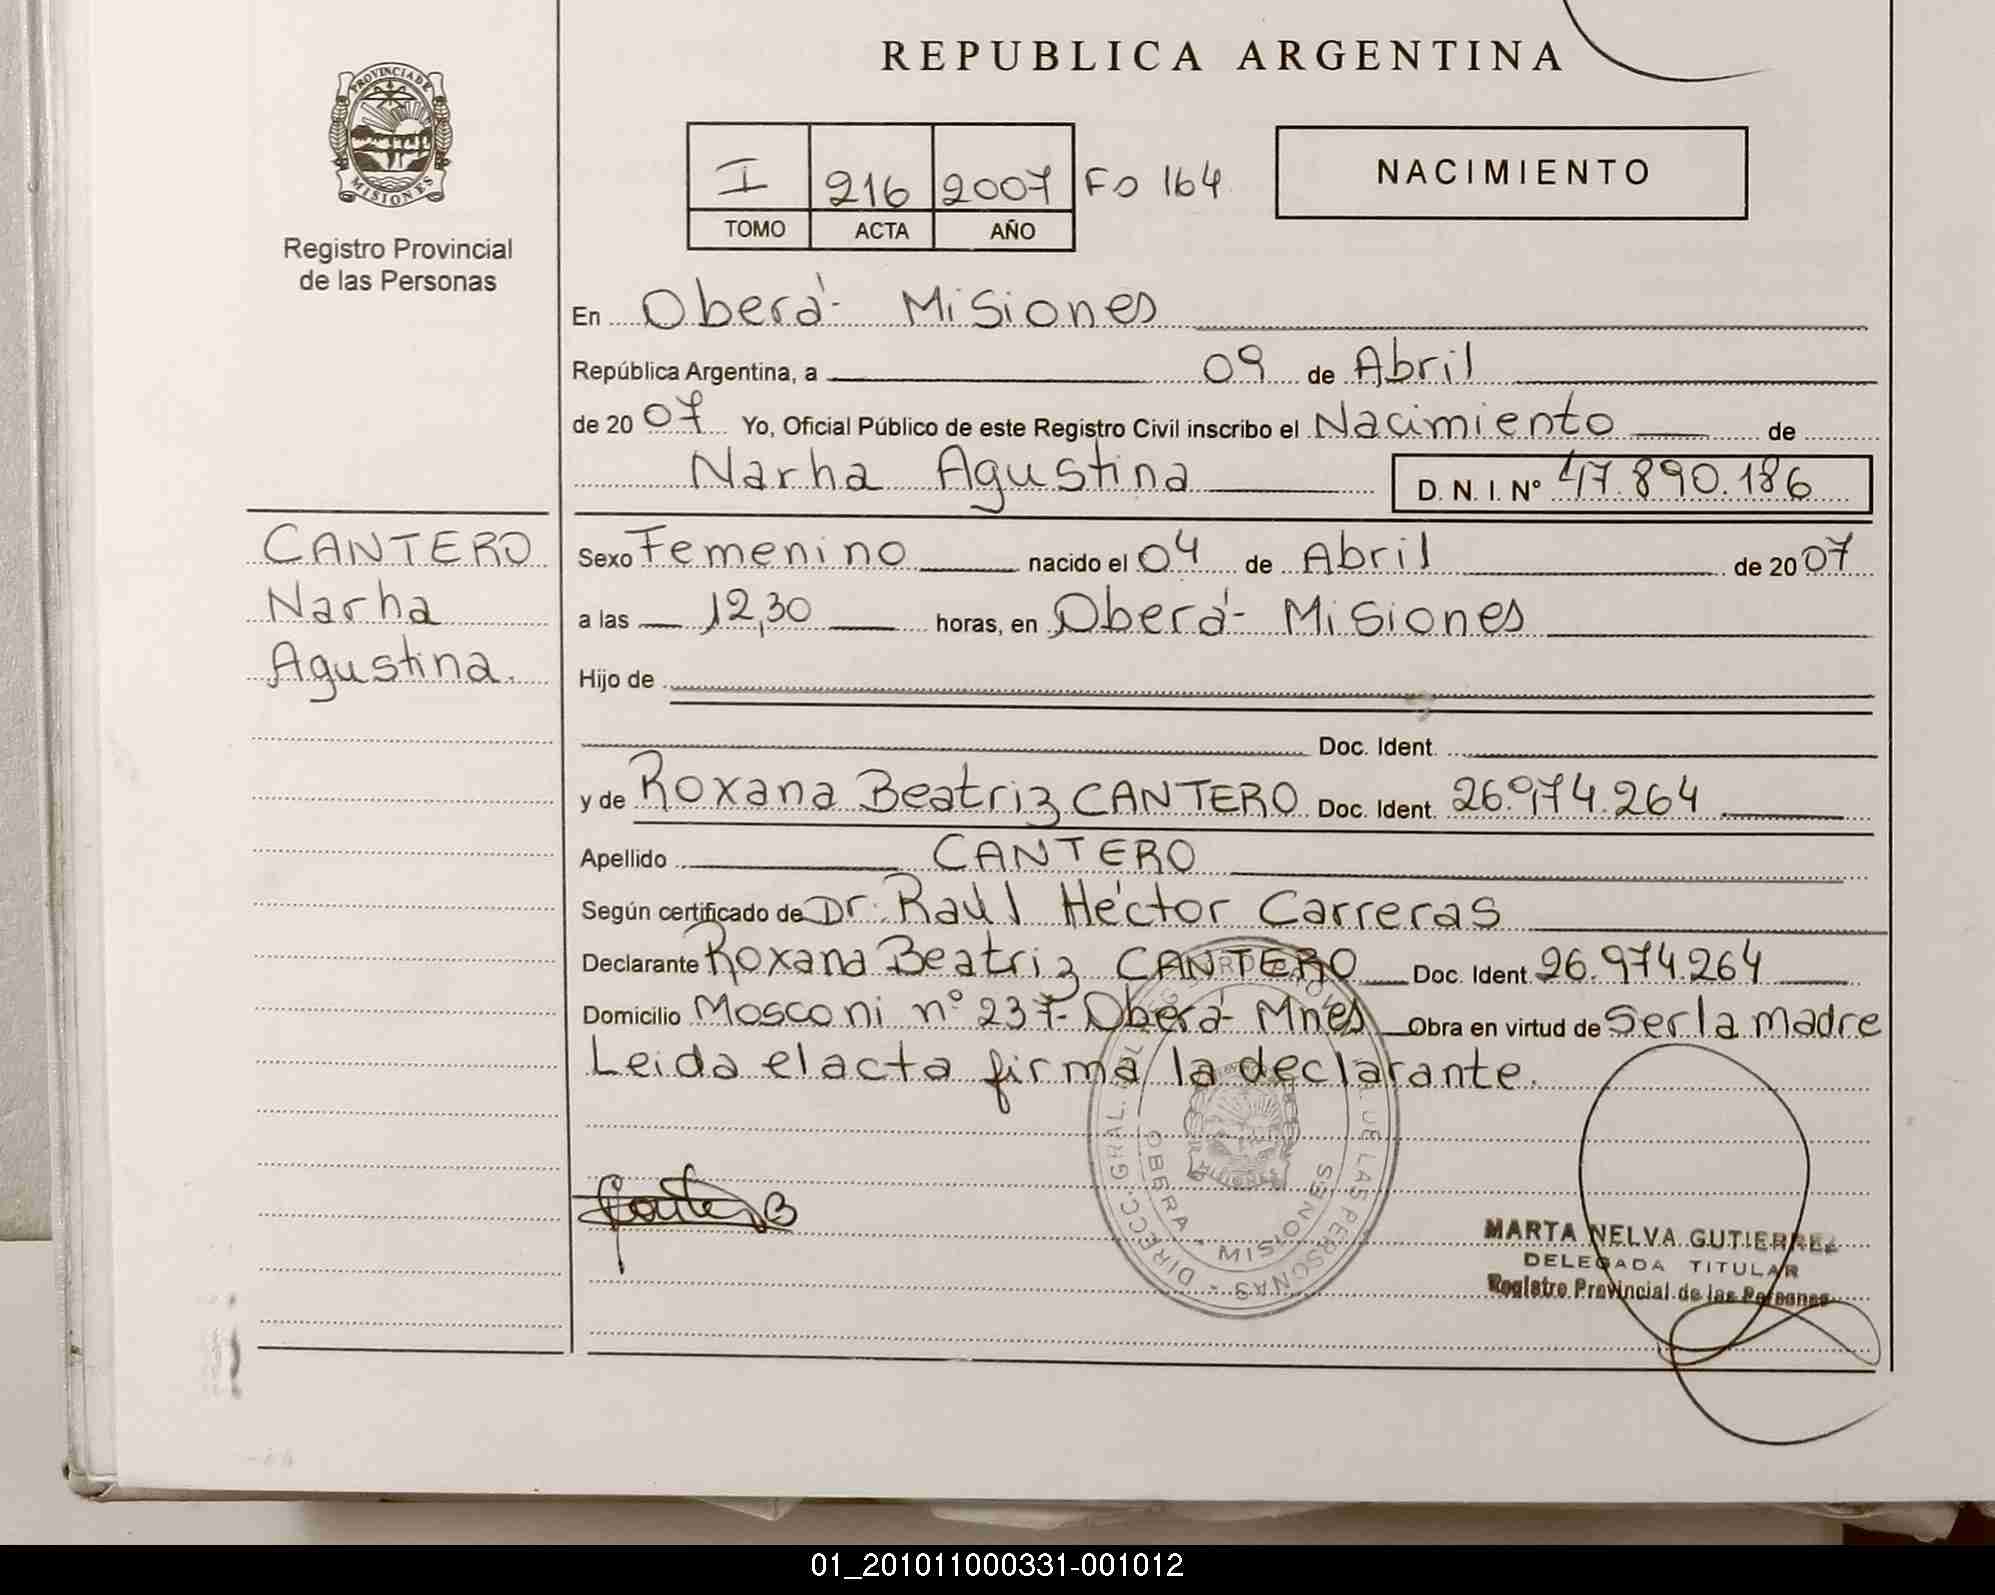 REPUBLICA ARGENTINA
PROVINCIA DE MISIONES
Registro Provincial
de las Personas
I 216 2007 Fo 164
TOMO ACTA AÑO
NACIMIENTO
En Oberá- Misiones
República Argentina, a 09 de Abril
de 20 07 Yo, Oficial Público de este Registro Civil inscribo el Nacimiento de
Narha Agustina D. N. I. Nº 47.890.186
CANTERO
Narha
Agustina.
Sexo Femenino nacido el 04 de Abril de 20 07
a las 12,30 horas, en Oberá- Misiones
Hijo de
Doc. Ident.
y de Roxana Beatriz CANTERO Doc. Ident. 26.974.264
Apellido CANTERO
Según certificado de Dr. Raúl Héctor Carreras
Declarante Roxana Beatriz CANTERO Doc. Ident. 26.974.264
Domicilio Mosconi nº 237- Oberá- Mnes Obra en virtud de Ser la madre
Leida el acta firma la declarante.
DIRECC. GRAL. DE LAS PERSONAS
OBERA - MISIONES
MARTA NELVA GUTIERREZ
DELEGADA TITULAR
Registro Provincial de las Personas
01_201011000331-001012